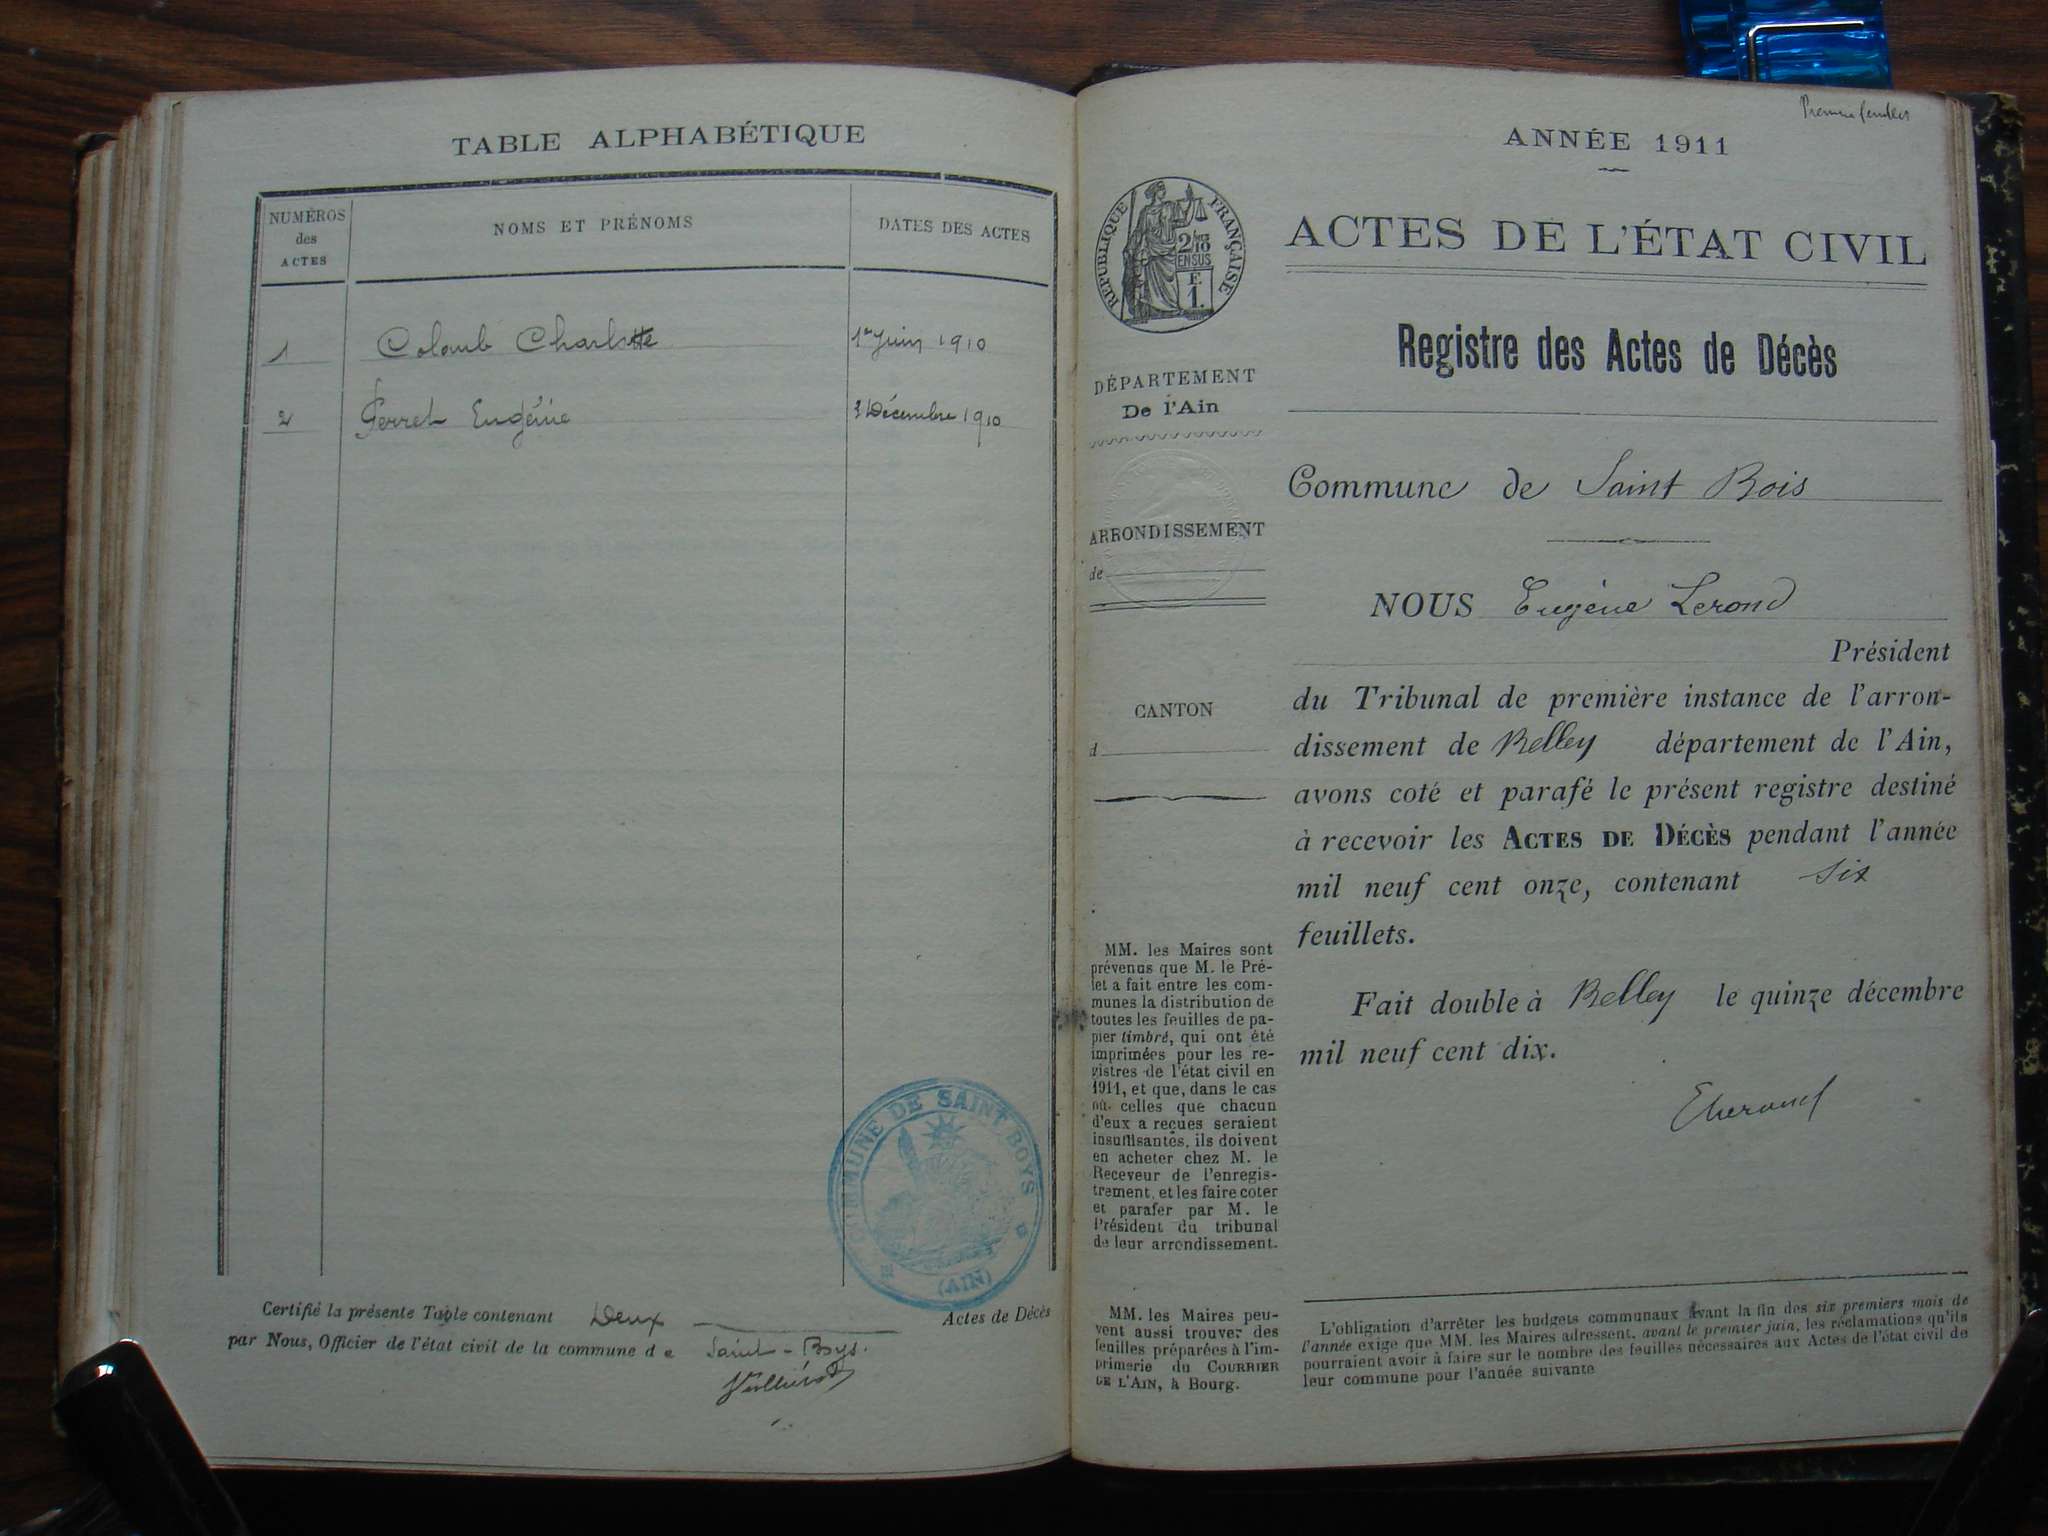 TABLE ALPHABÉTIQUE
NUMÉROS
des
ACTES
NOMS ET PRÉNOMS
DATES DES ACTES
1 Colomb Charlotte 1er Juin 1910
2 Perret Eugénie 3 Décembre 1910
COMMUNE DE SAINT BOYS
(AIN)
Certifié la présente Table contenant Deux Actes de Décès
par Nous, Officier de l'état civil de la commune de Saint-Boys.
ANNÉE 1911
RÉPUBLIQUE FRANÇAISE
2/10
EN SUS
E
1.
DÉPARTEMENT
De l'Ain
ARRONDISSEMENT
de
CANTON
d
MM. les Maires sont
prévenus que M. le Pré-
fet a fait entre les com-
munes la distribution de
toutes les feuilles de pa-
pier timbré, qui ont été
imprimées pour les re-
gistres de l'état civil en
1911, et que, dans le cas
où celles que chacun
d'eux a reçues seraient
insuffisantes, ils doivent
en acheter chez M. le
Receveur de l'enregis-
trement, et les faire coter
et parafer par M. le
Président du tribunal
de leur arrondissement.
MM. les Maires peu-
vent aussi trouver des
feuilles préparées à l'im-
primerie du COURRIER
DE L'AIN, à Bourg.
ACTES DE L'ÉTAT CIVIL
Registre des Actes de Décès
Commune de Saint Bois
NOUS Eugène Lerond
Président
du Tribunal de première instance de l'arron-
dissement de Belley département de l'Ain,
avons coté et parafé le présent registre destiné
à recevoir les ACTES DE DÉCÈS pendant l'année
mil neuf cent onze, contenant six
feuillets.
Fait double à Belley le quinze décembre
mil neuf cent dix.
L'obligation d'arrêter les budgets communaux avant la fin des six premiers mois de
l'année exige que MM. les Maires adressent, avant le premier juin, les réclamations qu'ils
pourraient avoir à faire sur le nombre des feuilles nécessaires aux Actes de l'état civil de
leur commune pour l'année suivante